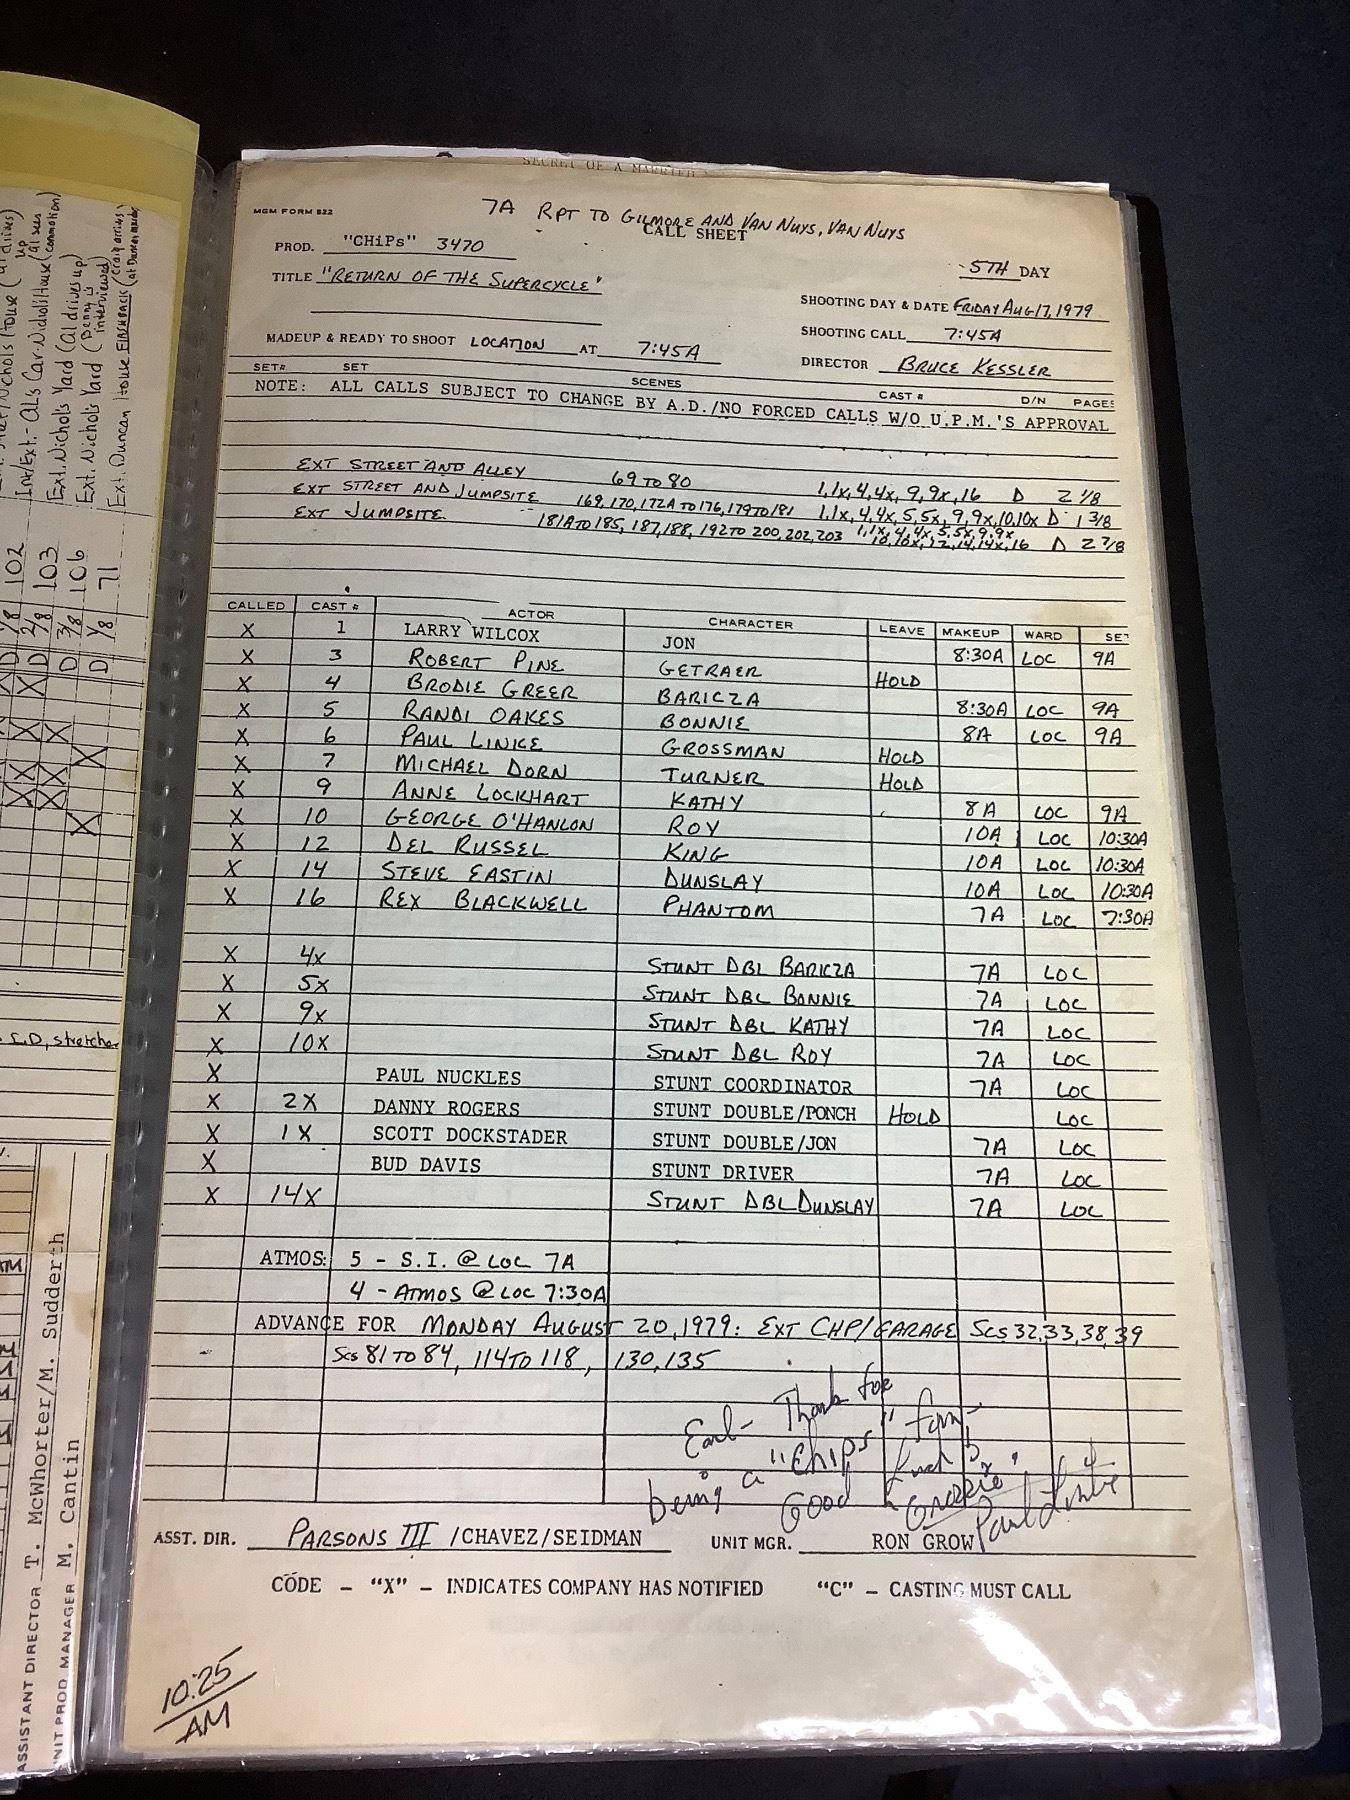 SECRET OF A MARRIED
MGM FORM 822
7A RPT TO GILMORE AND VAN NUYS, VAN NUYS
CALL SHEET
PROD. "CHiPs" 3470
5TH DAY
TITLE "RETURN OF THE SUPERCYCLE"
SHOOTING DAY & DATE FRIDAY AUG 17, 1979
SHOOTING CALL 7:45A
MADEUP & READY TO SHOOT LOCATION AT 7:45A
DIRECTOR BRUCE KESSLER
SET# SET SCENES CAST # D/N PAGES
NOTE: ALL CALLS SUBJECT TO CHANGE BY A.D./NO FORCED CALLS W/O U.P.M.'S APPROVAL
EXT STREET AND ALLEY 69 TO 80 1,1x,4,4x,9,9x,16 D 2 1/8
EXT STREET AND JUMPSITE 169,170,172A TO 176,179 TO 181 1,1x,4,4x,5,5x,9,9x,10,10x D 1 3/8
EXT JUMPSITE 181A TO 185, 187,188, 192 TO 200, 202, 203 1,1x,4,4x,5,5x,9,9x
10,10x,12,14,14x,16 D 2 7/8
CALLED CAST # ACTOR CHARACTER LEAVE MAKEUP WARD SET
X 1 LARRY WILCOX JON 8:30A LOC 9A
X 3 ROBERT PINE GETRAER HOLD
X 4 BRODIE GREER BARICZA 8:30A LOC 9A
X 5 RANDI OAKES BONNIE 8A LOC 9A
X 6 PAUL LINKE GROSSMAN HOLD
X 7 MICHAEL DORN TURNER HOLD
X 9 ANNE LOCKHART KATHY 8A LOC 9A
X 10 GEORGE O'HANLON ROY 10A LOC 10:30A
X 12 DEL RUSSEL KING 10A LOC 10:30A
X 14 STEVE EASTIN DUNSLAY 10A LOC 10:30A
X 16 REX BLACKWELL PHANTOM 7A LOC 7:30A
X 4x STUNT DBL BARICZA 7A LOC
X 5x STUNT DBL BONNIE 7A LOC
X 9x STUNT DBL KATHY 7A LOC
X 10x STUNT DBL ROY 7A LOC
X PAUL NUCKLES STUNT COORDINATOR 7A LOC
X 2X DANNY ROGERS STUNT DOUBLE/PONCH HOLD LOC
X 1X SCOTT DOCKSTADER STUNT DOUBLE/JON 7A LOC
X BUD DAVIS STUNT DRIVER 7A LOC
X 14X STUNT DBL DUNSLAY 7A LOC
ATMOS: 5 - S.I. @ LOC 7A
4 - ATMOS @ LOC 7:30A
ADVANCE FOR MONDAY AUGUST 20, 1979: EXT CHP/GARAGE Scs 32,33,38,39
Scs 81 TO 84, 114 TO 118, 130, 135
Earl- Thank for
being a "Chips" fan-
Good Luck
"Grossie"
Paul Linke
ASST. DIR. PARSONS III /CHAVEZ/SEIDMAN UNIT MGR. RON GROW
CODE - "X" - INDICATES COMPANY HAS NOTIFIED "C" - CASTING MUST CALL
10:25
AM
Int/Ext.- Al's Car-Nichols House (Al sees commotion) 102
Ext. Nichols Yard (Al drives up) 103
Ext. Nichols Yard (Benny is interviewed) 106
Ext. Duncan House FLASHBACK (Craig arrives 71
S.D, stretcher
ASSISTANT DIRECTOR T. McWhorter/M. Sudderth
UNIT PROD. MANAGER M. Cantin